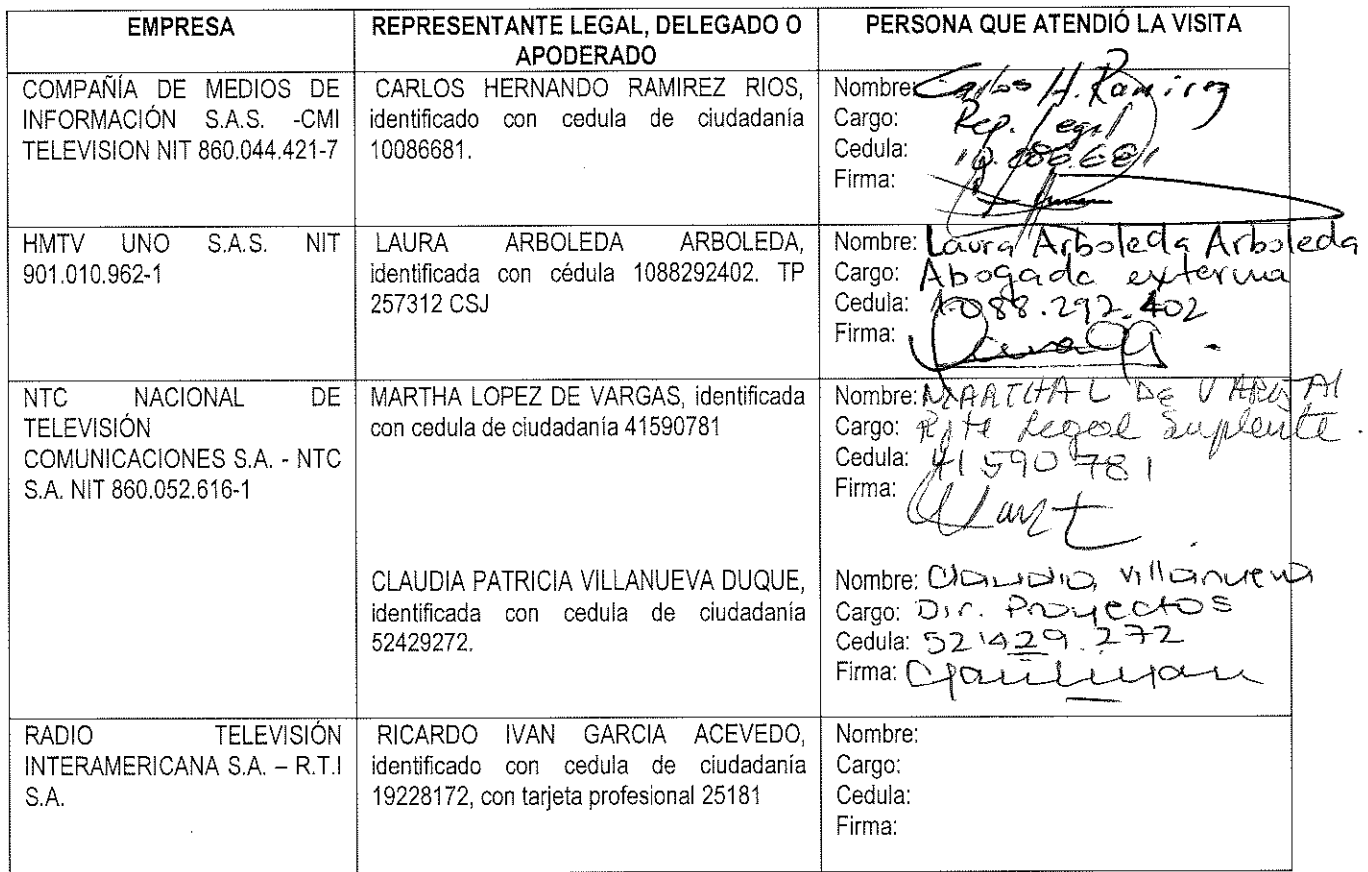 EMPRESA
REPRESENTANTE LEGAL, DELEGADO O
APODERADO
PERSONA QUE ATENDIÓ LA VISITA
COMPAÑÍA DE MEDIOS DE
INFORMACIÓN S.A.S. -CMI
TELEVISION NIT 860.044.421-7
CARLOS HERNANDO RAMIREZ RIOS,
identificado con cedula de ciudadanía
10086681.
Nombre: Carlos H. Ramirez
Cargo: Rep. Legal
Cedula: 10.086.681
Firma:
HMTV UNO S.A.S. NIT
901.010.962-1
LAURA ARBOLEDA ARBOLEDA,
identificada con cédula 1088292402. TP
257312 CSJ
Nombre: Laura Arboleda Arboleda
Cargo: Abogada externa
Cedula: 1.088.292.402
Firma:
NTC NACIONAL DE
TELEVISIÓN
COMUNICACIONES S.A. - NTC
S.A. NIT 860.052.616-1
MARTHA LOPEZ DE VARGAS, identificada
con cedula de ciudadanía 41590781
Nombre: MARTHA L DE VARGAS
Cargo: Rpte Legal Suplente.
Cedula: 41590781
Firma:
CLAUDIA PATRICIA VILLANUEVA DUQUE,
identificada con cedula de ciudadanía
52429272.
Nombre: Claudia Villanueva
Cargo: Dir. Proyectos
Cedula: 52'429.272
Firma:
RADIO TELEVISIÓN
INTERAMERICANA S.A. – R.T.I
S.A.
RICARDO IVAN GARCIA ACEVEDO,
identificado con cedula de ciudadanía
19228172, con tarjeta profesional 25181
Nombre:
Cargo:
Cedula:
Firma: